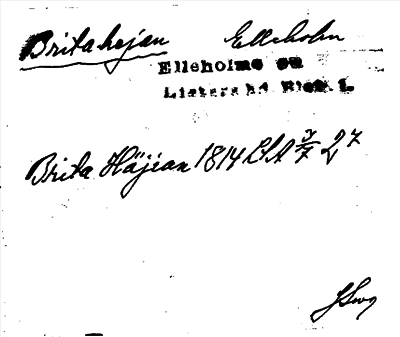 Britahejan Elleholm
Elleholms sn
Listers hd Blek. l.
Brita Häjian 1814 LSA 3/7 27